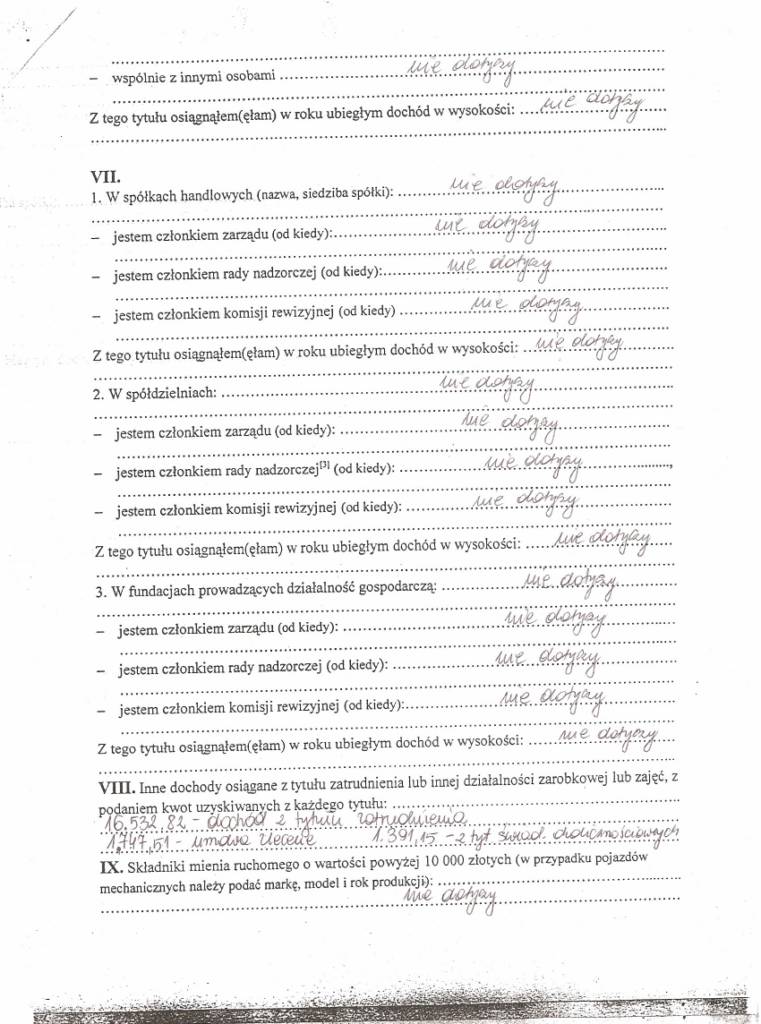 – wspólnie z innymi osobami ........ nie dotyczy
Z tego tytułu osiągnąłem(ęłam) w roku ubiegłym dochód w wysokości: .... nie dotyczy
VII.
1. W spółkach handlowych (nazwa, siedziba spółki): ........ nie dotyczy
– jestem członkiem zarządu (od kiedy):........ nie dotyczy
– jestem członkiem rady nadzorczej (od kiedy):........ nie dotyczy
– jestem członkiem komisji rewizyjnej (od kiedy) ........ nie dotyczy
Z tego tytułu osiągnąłem(ęłam) w roku ubiegłym dochód w wysokości: .... nie dotyczy
2. W spółdzielniach: ........ nie dotyczy
– jestem członkiem zarządu (od kiedy): ........ nie dotyczy
– jestem członkiem rady nadzorczej[3] (od kiedy): ........ nie dotyczy ........,
– jestem członkiem komisji rewizyjnej (od kiedy): ........ nie dotyczy
Z tego tytułu osiągnąłem(ęłam) w roku ubiegłym dochód w wysokości: .... nie dotyczy
3. W fundacjach prowadzących działalność gospodarczą: ........ nie dotyczy
– jestem członkiem zarządu (od kiedy): ........ nie dotyczy
– jestem członkiem rady nadzorczej (od kiedy): ........ nie dotyczy
– jestem członkiem komisji rewizyjnej (od kiedy):........ nie dotyczy
Z tego tytułu osiągnąłem(ęłam) w roku ubiegłym dochód w wysokości: .... nie dotyczy
VIII. Inne dochody osiągane z tytułu zatrudnienia lub innej działalności zarobkowej lub zajęć, z
podaniem kwot uzyskiwanych z każdego tytułu: ........
16.532,82 - dochód z tytułu zatrudnienia
1.747,51 - umowa zlecenie 1.391,15 - z tyt. świad. okolicznościowych
IX. Składniki mienia ruchomego o wartości powyżej 10 000 złotych (w przypadku pojazdów
mechanicznych należy podać markę, model i rok produkcji): ........
nie dotyczy